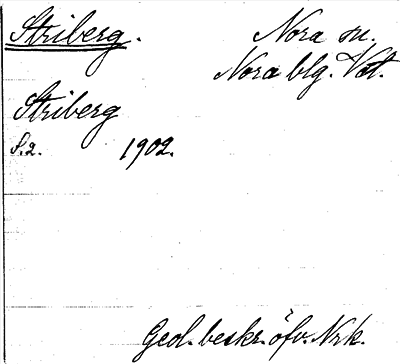 Striberg. Nora sn.
Nora blg. Vstm.
Striberg
S.2. 1902.
Geol. beskr. öfv. Nrk.